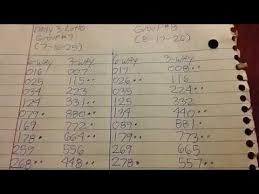 Daily 3 Lotto
Group #7 Group #8
(7-16-25) (8-17-26)
6-way 3-way 6-way 3-way
016 007 017 008
025 115 026 116
034 223 035 224
124 331 134 332
079 880 044
169 772 089 881
178 664 179 773
259 556 269 665
268 448 278 557